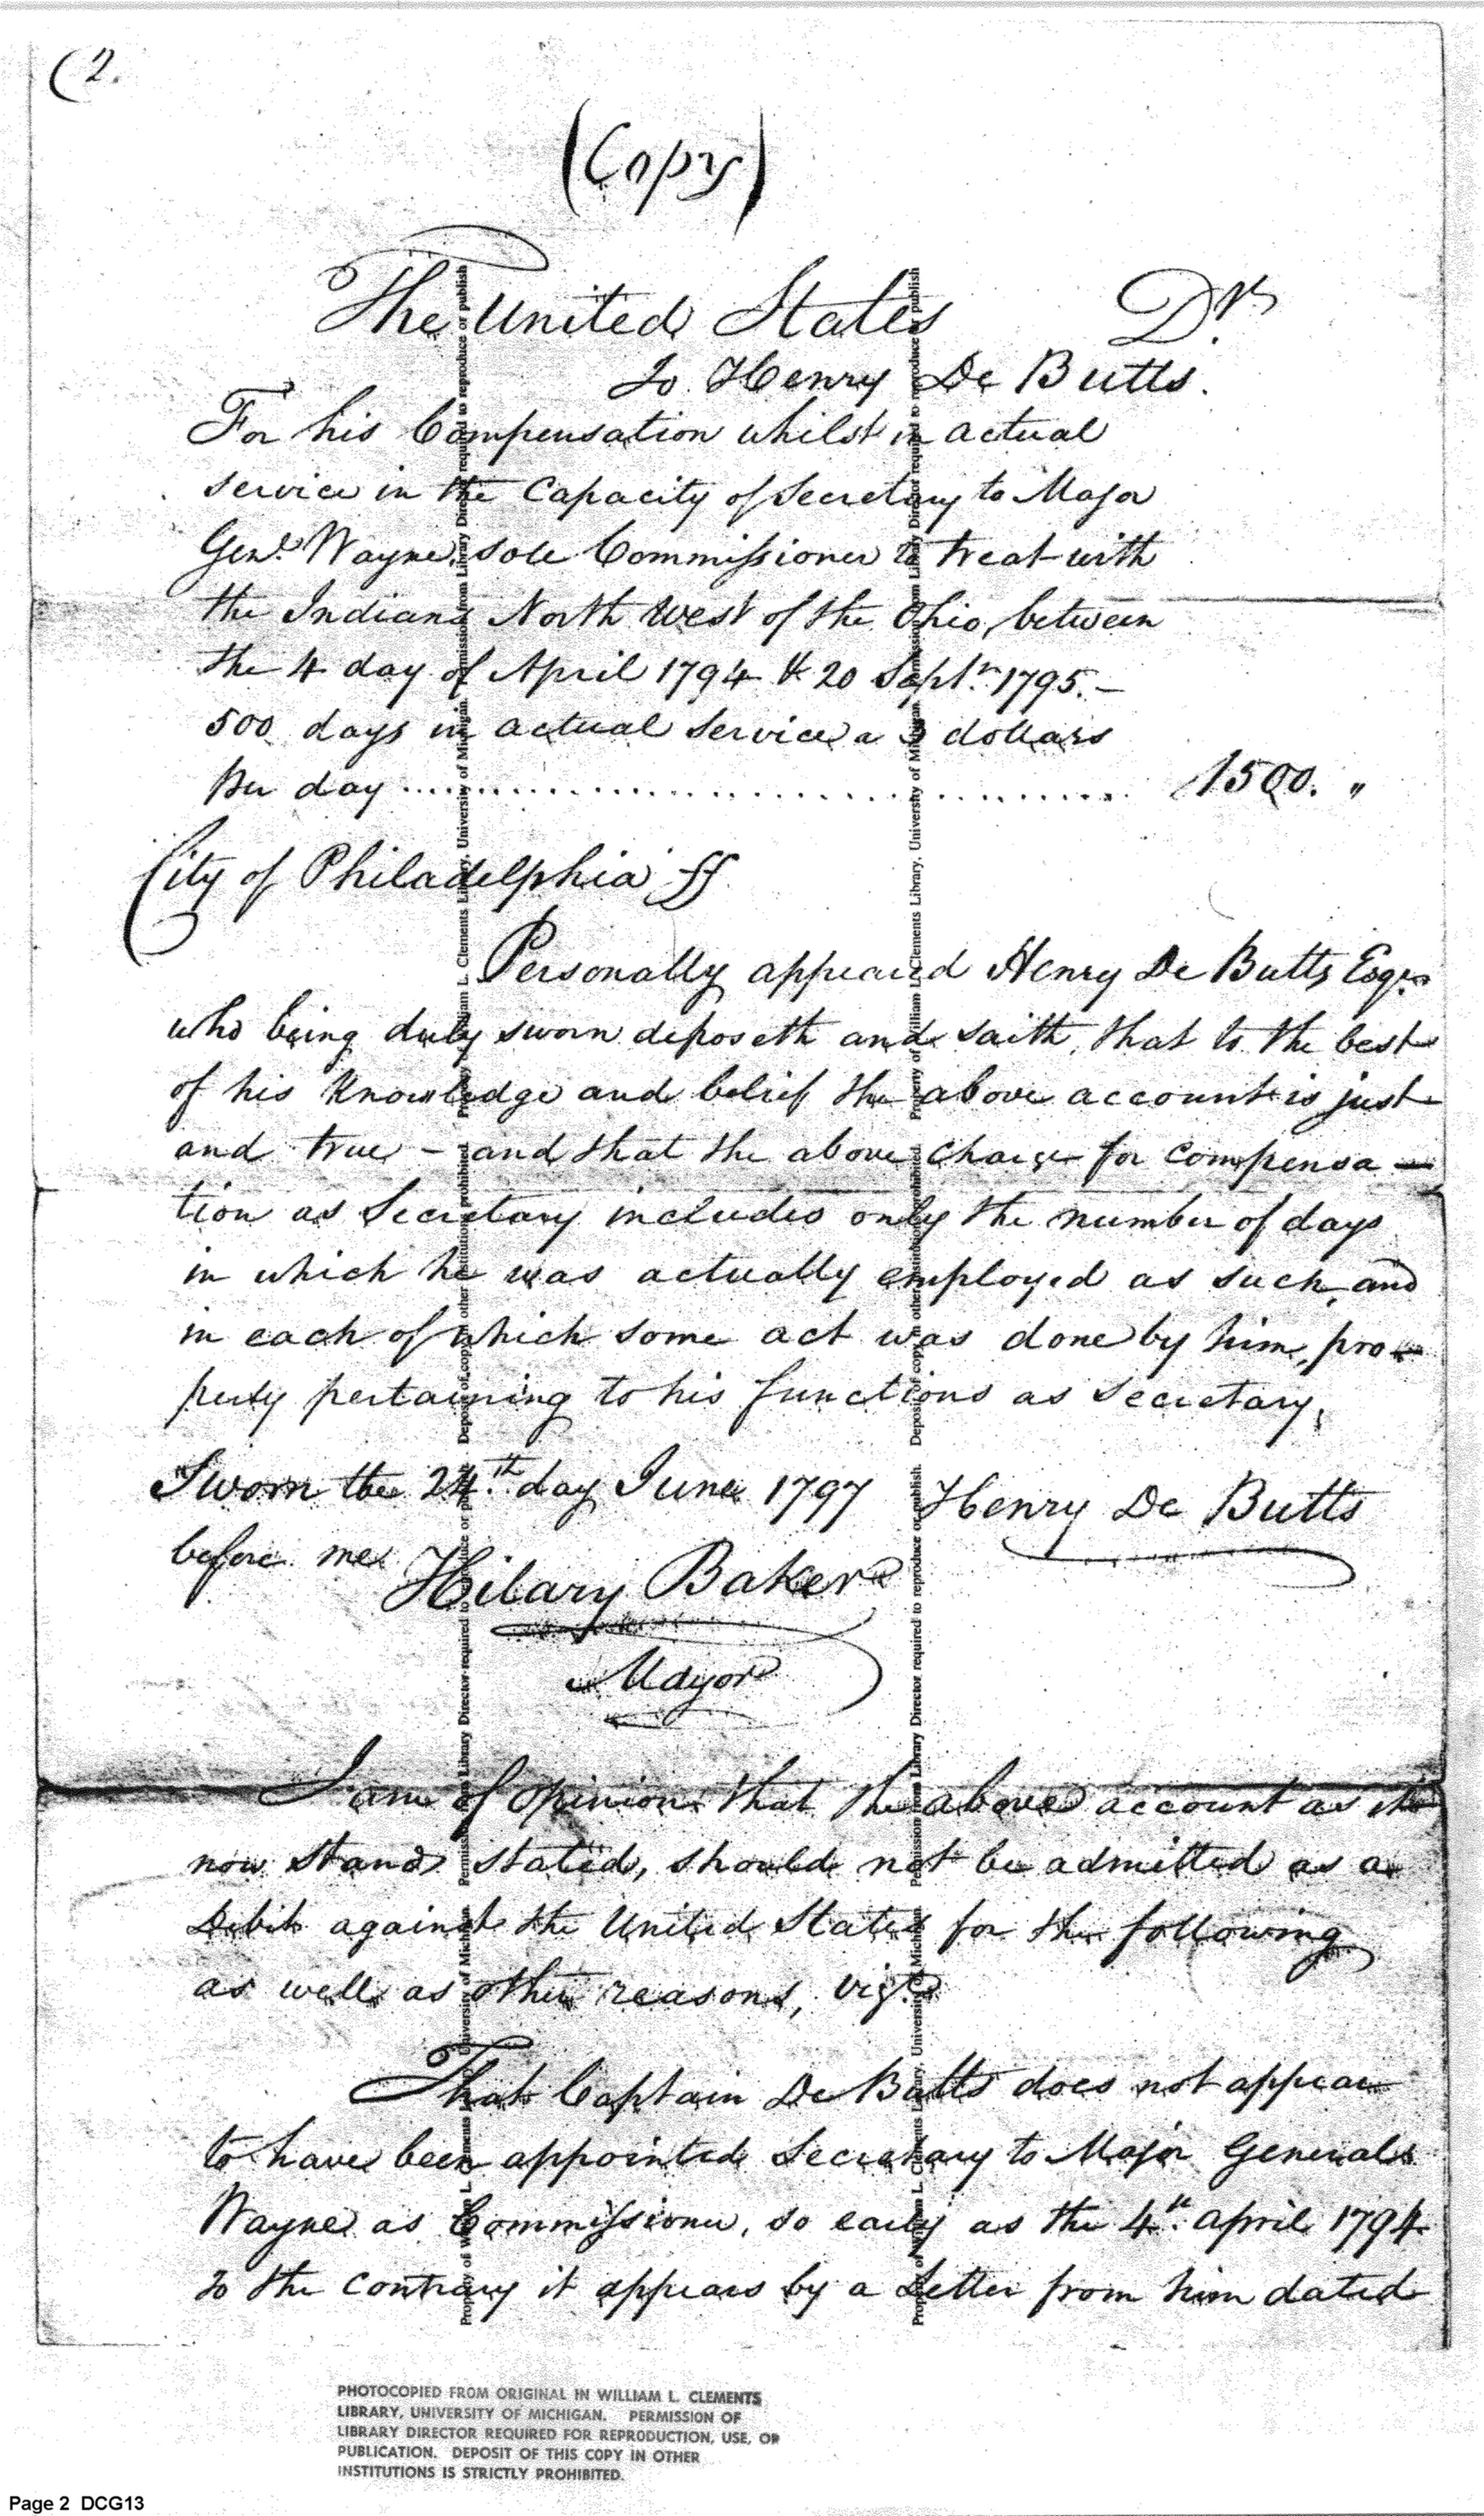 (2.
(Copy)
The United States Dr.
To Henry De Butts.
For his Compensation whilst in actual
service in the Capacity of Secretary to Major
Genl. Wayne, sole Commissioner to treat with
the Indians North West of the Ohio, between
the 4 day of April 1794 & 20 Septr. 1795.-
500 days in actual service a 3 dollars
per day .......................................... 1500. "
City of Philadelphia ss
Personally appeared Henry De Butts Esqr.
who being duly sworn deposeth and saith, that to the best
of his Knowledge and belief the above account is just
and true - and that the above Charge for compensa-
tion as Secretary includes only the number of days
in which he was actually employed as such, and
in each of which some act was done by him, pro-
perly pertaining to his functions as secretary,
Sworn the 24.th day June 1797 Henry De Butts
before me
Hilary Baker
Mayor
I am of opinion that the above account as it
now stands stated, should not be admitted as a
Debit against the United States for the following
as well as other reasons, vizt.
That Captain De Butts does not appear
to have been appointed Secretary to Major General
Wayne as Commissioner, so early as the 4th. april 1794
To the contrary it appears by a Letter from him dated
Property of William L. Clements Library, University of Michigan. Permission from Library Director required to reproduce or publish. Deposit of copy in other institutions prohibited.
Property of William L. Clements Library, University of Michigan. Permission from Library Director required to reproduce or publish
Property of William L. Clements Library, University of Michigan. Permission from Library Director required to reproduce or publish. Deposit of copy in other institutions prohibited.
Property of William L. Clements Library, University of Michigan. Permission from Library Director required to reproduce or publish
PHOTOCOPIED FROM ORIGINAL IN WILLIAM L. CLEMENTS
LIBRARY, UNIVERSITY OF MICHIGAN. PERMISSION OF
LIBRARY DIRECTOR REQUIRED FOR REPRODUCTION, USE, OR
PUBLICATION. DEPOSIT OF THIS COPY IN OTHER
INSTITUTIONS IS STRICTLY PROHIBITED.
Page 2 DCG13